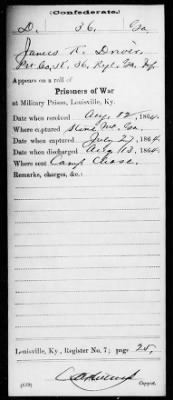 (Confederate.)
D. 36. Ga.
James K. Driver
Pvt Co, K, 36, Regt Ga. Inf
Appears on a roll of
Prisoners of War
at Military Prison, Louisville, Ky.
Date when received Aug 12, 1864.
Where captured Mt. Ga.
Date when captured July 27, 1864.
Date when discharged Aug 13, 1864.
Where sent Camp Chase.
Remarks, charges, &c.:
Louisville, Ky., Register No. 7; page 25.
Copyist.